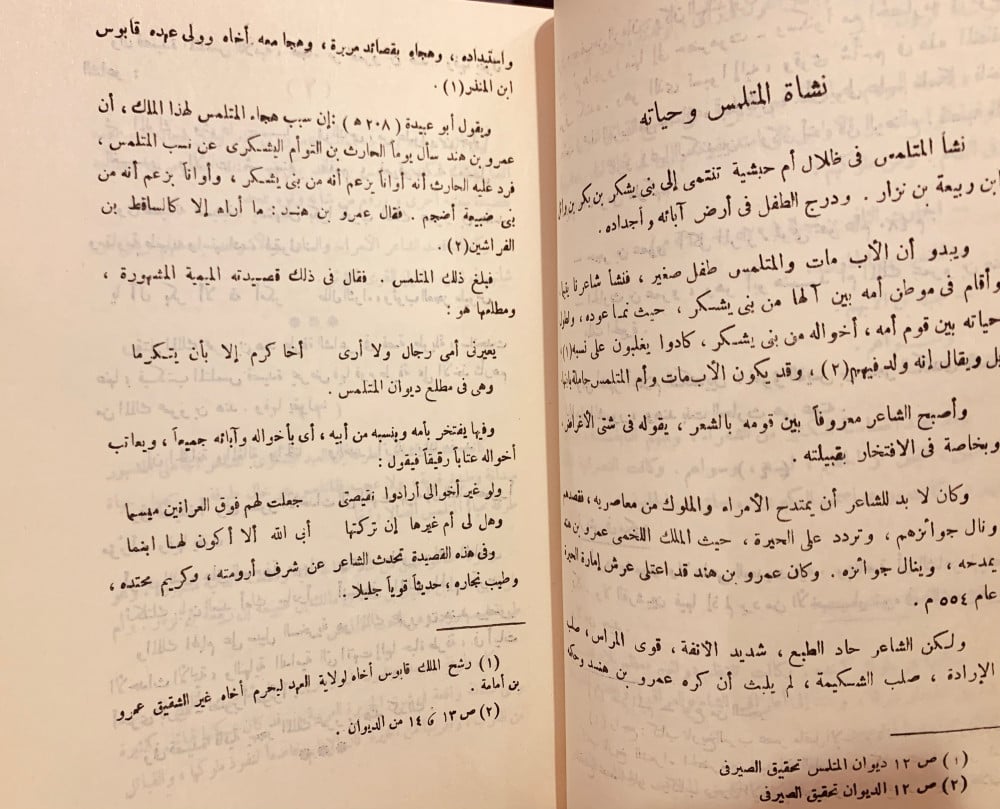 نشأة المتلمس وحياته
نشأ المتلمس فى ظلال أم حبشية تنتمى إلى بنى يشكر بن بكر بن وائل
ابن ربيعة بن نزار . ودرج الطفل فى أرض آبائه وأجداده .
ويبدو أن الأب مات والمتلمس طفل صغير ، فنشأ شاعرنا
وأقام فى موطن أمه بين آلها من بنى يشكر ، حيث نما عوده ،
حياته بين قوم أمه ، أخواله من بنى يشكر ، كادوا يغلبون على نسبه (١)
بل ويقال إنه ولد فيهم (٢) ، وقد يكون الأب مات وأم المتلمس حامله
وأصبح الشاعر معروفاً بين قومه بالشعر ، يقوله فى شتى الأغراض
وبخاصة فى الافتخار بقبيلته .
وكان لا بد للشاعر أن يمتدح الأمراء والملوك من معاصريه ، فقصدهم
ونال جوائزهم ، وتردد على الحيرة ، حيث الملك اللخمى عمرو بن هند
يمدحه ، وينال جوائزه . وكان عمرو بن هند قد اعتلى عرش إمارة الحيرة
عام ٥٥٤ م .
ولكن الشاعر حاد الطبع ، شديد الأنفة ، قوى المراس ، صلب
الإرادة ، صلب الشكيمة ، لم يلبث أن كره عمرو بن هند وحكمه
(١) ص ١٢ ديوان المتلمس تحقيق الصيرفى
(٢) ص ١٢ الديوان تحقيق الصيرفى
واستبداده ، وهجاه بقصائد مريرة ، وهجا معه أخاه وولى عهده قابوس
ابن المنذر(١) .
ويقول أبو عبيدة ( ٢٠٨ ه ) :إن سبب هجاء المتلمس لهذا الملك ، أن
عمرو بن هند سأل يوماً الحارث بن التوأم اليشكرى عن نسب المتلمس ،
فرد عليه الحارث أنه أواناً يزعم أنه من بنى يشكر ، وأواناً يزعم أنه من
بنى ضبيعة أضجم . فقال عمرو بن هند : ما أراه إلا كالساقط بن
الفراشين(٢).
فبلغ ذلك المتلمس . فقال فى ذلك قصيدته الميمية المشهورة ،
ومطلعها هو :
يعيرنى أمى رجال ولا أرى أخا كرم إلا بأن يتكرما
وهى فى مطلع ديوان المتلمس .
وفيها يفتخر بأمه وبنسبه من أبيه ، أى بأخواله وآبائه جميعاً ، ويعاتب
أخواله عتاباً رقيقاً فيقول :
ولو غير أخوالى أرادوا نقيصتى جعلت لهم فوق العرانين ميسما
وهل لى أم غيرها إن تركتها أبى الله ألا أكون لها ابنما
وفى هذه القصيدة تحدث الشاعر عن شرف أرومته ، وكريم محتده ،
وطيب نجاره ، حديثاً قوياً جليلا .
(١) رشح الملك قابوس أخاه لولاية العهد ليحرم أخاه غير الشقيق عمرو
بن أمامة .
(٢) ص ١٣ ، ١٤ من الديوان .